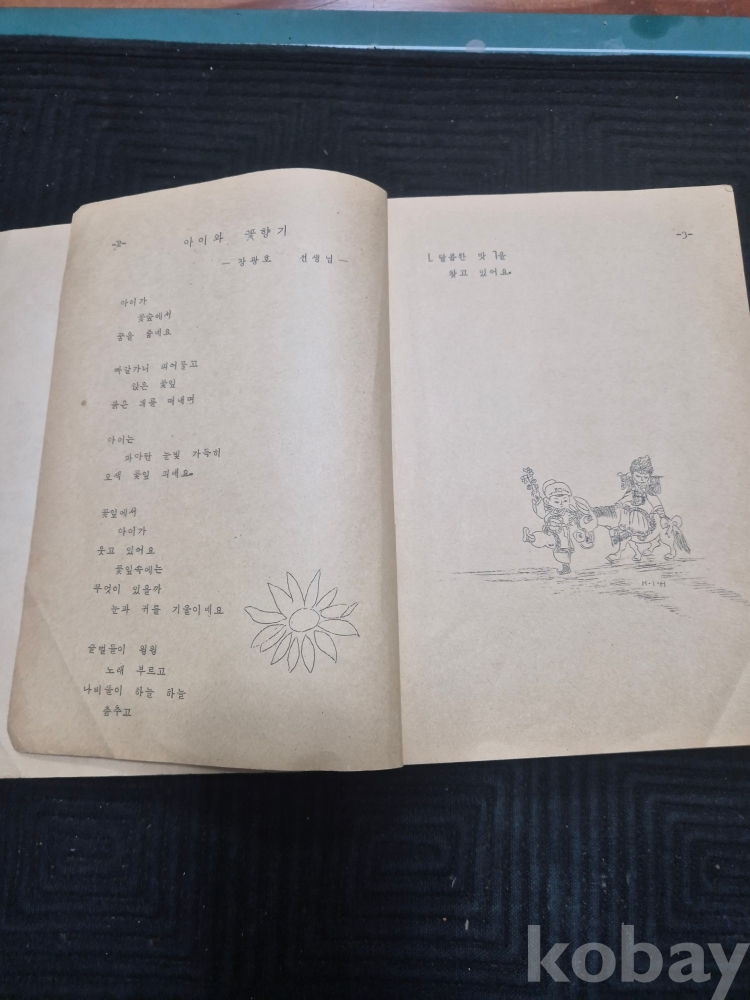 -2-
아이와 꽃향기
— 장광호 선생님 —
아이가
꽃숲에서
꿈을 줍네요
빠알가니 피어물고
앉은 꽃잎
붉은 때를 떠내며
아이는
파아란 눈빛 가득히
오색 꽃잎 띄네요.
꽃잎에서
아이가
웃고 있어요
꽃잎속에는
무엇이 있을까
눈과 귀를 기울이네요
꿀벌들이 윙윙
노래 부르고
나비들이 하늘 하늘
춤추고
-3-
「달콤한 맛」을
찾고 있어요.
M.J.H
kobay